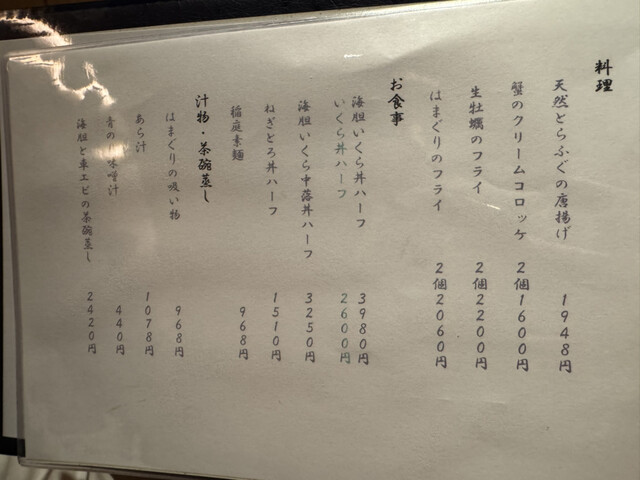 料理
天然とらふぐの唐揚げ 1948円
蟹のクリームコロッケ 2個1600円
生牡蠣のフライ 2個2200円
はまぐりのフライ 2個2060円
お食事
海胆いくら丼ハーフ 3980円
いくら丼ハーフ 2600円
海胆いくら中落丼ハーフ 3250円
ねぎとろ丼ハーフ 1510円
稲庭素麺 968円
汁物・茶碗蒸し
はまぐりの吸い物 968円
あら汁 1078円
青の 味噌汁 440円
海胆と車エビの茶碗蒸し 2420円